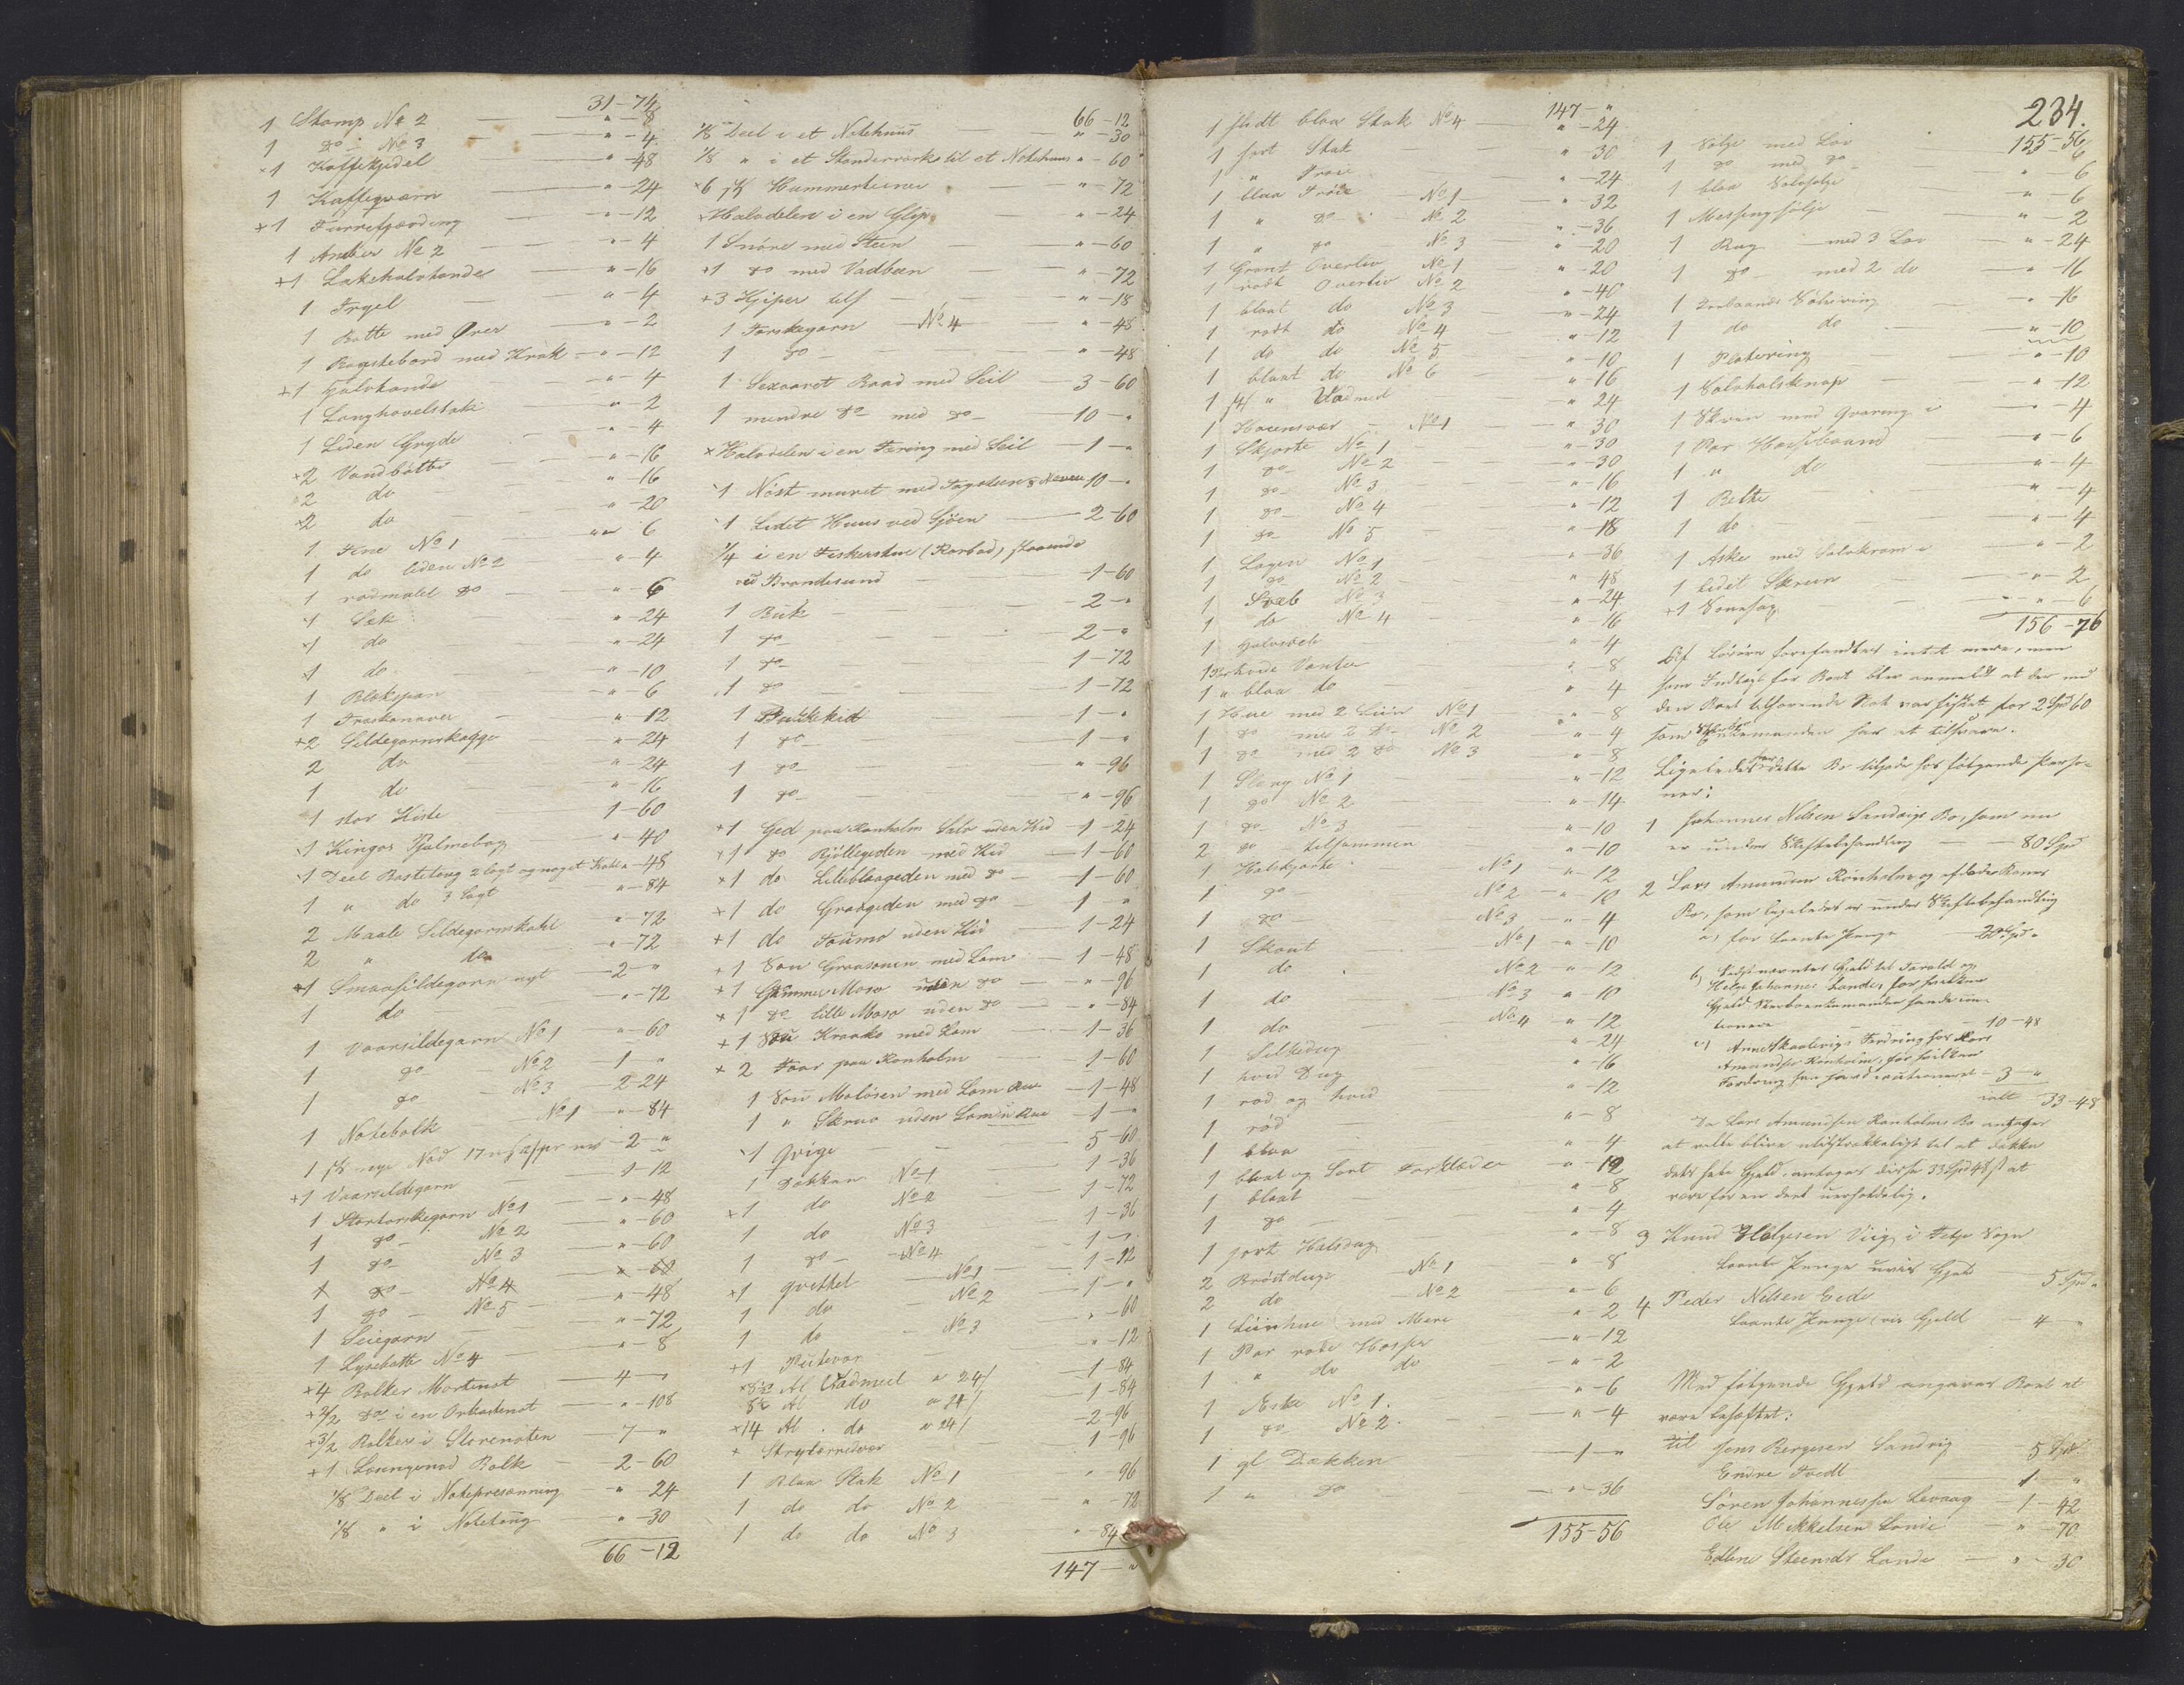 31-74
1 Stamp No 2 — " - 8
1 do - No 3 — " - 4
×1 Kaffekjedel — " - 48
1 Kaffeqværn — " - 24
×1 Furrefjærding — " - 12
1 Anker No 2 — " - 4
+1 Lakehalvtønde — " - 16
1 Trygel — " - 4
1 Bøtte med Ører — " - 2
1 Bagstebord med Krak — " - 12
+1 Halvtønde — " - 4
1 Langhøvelstok — " - 2
1 Liden Gryde — " - 4
+2 Vandbøtter — " - 16
×2 do — " - 16
×2 do — " - 20
1 Tine No 1 — " - 6
1 do liden No 2 — " - 4
1 rødmalet do — " - 6
×1 Sæk — " - 24
×1 do — " - 24
×1 do — " - 10
1 Blekspan — " - 6
1 — " - 12
+2 Sildegarnskagge — " - 24
2 do — " - 24
1 do — " - 16
×1 stor Kiste — 1 - 60
×1 Kingos Psalmebog — " - 40
×1 Deel Bastetoug 2 lagt og noget Kabel " - 48
1 " do 3 lagt — " - 84
2 Maale Sildegarnskabl — " - 72
2 " do — " - 72
×1 Smaasildegarn nyt — 2 - "
1 do — " - 72
1 Vaarsildegarn No 1 — " - 60
1 do — No 2 — 1 - "
1 do — No 3 — 2 - 24
1 Notebolk — No 1 — " - 84
1 stk nye Nod — 2 - "
+1 Vaarsildegarn — 1 - 12
1 Stortorskegarn No 1 — " - 48
1 do — No 2 — " - 60
1 do — No 3 — " - 60
1 do — No 4 — " - 60
1 do — No 5 — " - 48
1 Seiegarn — " - 72
1 Lysebøtte No 4 — " - 8
+4 Bolker Mortenot — 4 - "
+2/2 do i en Orkastenot — " - 108
+3/2 Bolker i Storenoten — 7 - "
+1 Løsingenod Bolk — 2 - 60
1/8 Deel i Notepresenning — " - 24
1/8 " i Notetoug — " - 30
66 - 12
66-12
1/8 Deel i et Notehuus — " - 30
1/8 " i et Stenderverks til et Notehuus " - 60
×6 stk Hummerteiner — " - 72
×Halvdelen i en Glip — " - 24
1 Snøre med Steen — " - 60
×1 do med Vadbeen — " - 72
+3 Kjiper tils — " - 18
1 Torskegarn — No 4 — " - 48
1 do — " - 48
1 Sexaaret Baad med Seil — 3 - 60
1 mindre do med do — 10 - "
×Halvdelen i en Færing med Seil — 1 - "
×1 Nøst muret med Tagsteen & Næver 10 - "
×1 Lidet Huus ved Sjøen — 2 - 60
1/4 i en Fiskerstue (Rorbod) staaende
ved Brandesund — 1 - 60
1 Buk — 2 - "
1 do — 2 - "
1 do — 1 - 72
1 do — 1 - 72
1 Bukkekid — 1 - "
1 do — 1 - "
1 do — " - 96
1 do — " - 96
×1 Ged paa Rønholm Sølv uden Kid — 1 - 24
×1 do Bjøllegeden med Kid — 1 - 60
×1 do Lilleblaageden med do — 1 - 60
×1 do Graageden med do — 1 - "
+1 do Toumo uden Kid — 1 - 24
×1 Sou Graasouen med Lam — 1 - 48
×1 Gammel Moso uden do — " - 96
×1 do lille Moso uden do — " - 84
+1 Sou Kraako med Lam — 1 - 36
×2 Faar paa Rønholm — 1 - 60
1 Sou Moløsen med Lam — 1 - 48
1 " Skruo uden Lam — 1 - "
×1 Qvige — 5 - 60
1 Dækken No 1 — 1 - 36
+1 do No 2 — 1 - 72
1 do No 3 — 1 - 36
1 do — No 4 — 1 - "
×1 Qvittel No 1 — 1 - 12
1 do No 2 — 1 - "
1 do No 3 — " - 60
+1 Putevar — " - 12
×8½ Al Vadmeel a 24 / 1 - 84
8½ Al do a 24 / 1 - 84
×14 Al do a 24 / 2 - 96
+ Stry — 1 - 96
1 Blaa Stak No 1 — " - 96
1 do do No 2 — " - 72
1 do do No 3 — " - 84
147 - "
147 - "
1 slidt blaa Stak No 4 — " - 24
1 sort Stak — " - 30
1 " Trøie — " - 24
1 blaa Trøie No 1 — " - 32
1 " do No 2 — " - 36
1 " do No 3 — " - 20
1 Grønt Overliv No 1 — " - 20
1 rødt Overliv No 2 — " - 40
1 blaat do No 3 — " - 24
1 rødt do No 4 — " - 12
1 do do No 5 — " - 10
1 blaat do No 6 — " - 16
1 stk " Vadmel — " - 24
1 No 1 — " - 30
1 Skjorte No 1 — " - 30
1 do — No 2 — " - 30
1 do — No 3 — " - 16
1 do — No 4 — " - 12
1 do — No 5 — " - 18
1 Lagen No 1 — " - 36
1 do No 2 — " - 48
1 No 3 — " - 24
1 do No 4 — " - 16
1 — " - 4
1 Par hvide Vanter — " - 8
1 " blaa do — " - 4
1 Hue med 2 Liin No 1 — " - 8
1 do med 2 do No 2 — " - 4
1 do med 2 do No 3 — " - 8
1 No 1 — " - 12
1 do No 2 — " - 14
1 do No 3 — " - 10
2 do tilsammen — " - 10
1 No 1 — " - 12
1 do — No 2 — " - 10
1 do — No 3 — " - 4
1 Skaut No 1 — " - 10
1 do No 2 — " - 12
1 do No 3 — " - 10
1 do No 4 — " - 12
1 Silkedug — " - 24
1 hvid Dug — " - 16
1 rød og hvid — " - 12
1 rød — " - 8
1 blaa — " - 4
1 blaat og Sort Forklæde — " - 12
1 blaat — " - 8
1 do — " - 4
1 sort Halsdug — " - 8
2 Brøstduge No 1 — " - 8
2 do No 2 — " - 6
1 Liinhue med Mere — " - 2
1 Par røde Hoser — " - 12
1 " do do — " - 2
1 Eske No 1 — " - 6
1 do No 2 — " - 4
1 gl Dækken — 1 - "
1 " do — " - 36
155-56
234.
155-56
1 Sølje med Løv — " - 6
1 do med do — " - 6
1 blaa Sølvsølje — " - 6
1 Messingsølje — " - 2
1 Ring med 3 Løv — " - 24
1 do — med 2 do — " - 16
1 Sølvring — " - 16
1 do do — " - 10
1 Platering — " - 10
1 Sølvhalsknap — " - 12
1 Skrin med i — " - 4
1 Par Hosebaand — " - 6
1 " do — " - 4
1 Belte — " - 4
1 do — " - 4
1 Æske med Sølvkram i — " - 2
1 lidet Skrin — " - 2
+1 — " - 6
156-76
Af Løsøre forefandtes intet mere, men
som Indtægt for Boet blev anmeldt at der ved
den Boet tilhørende Not var fisket for 2 Spd 60
som Enkemanden har at tilsvare.
Ligeledes har dette Bo tilgode hos følgende Perso-
ner:
1 Johannes Nelsen Sandvigs Bo, som nu
er under Skiftebehandling — 80 Spd
2 Lars Amundsen Rønholm og afdøde Kones
Bo, som ligeledes er under Skiftebehandling
a) for laante Penge — 20 Spd "
b) Gjæld til Farald og
Helge Johannes Lande, for hvilken
Gjæld Enkemanden havde cau-
tioneret — 10-48
c) Anne Skaalevigs Fordring hos Lars
Amundsen Rønholm, for hvilken
Fordring han havde cautioneret — 3 - "
ialt 33-48
Da Lars Amundsen Rønholms Bo antages
at ville blive utilstrækkeligt til at dække
dets hele Gjæld, antages disse 33 Spd 48 s at
være for en deel uerholdelig.
3 Knud Helgesen Viig i Fitje Sogn
laante Penge uvis Gjæld — 5 Spd "
4 Peder Nelsen Eide
laante Penge (vis Gjæld — 4 - "
Med følgende Gjæld angaves Boet at
være behæftet:
til Jens Børgesen Sandvig — 5 Spd
Endre Tvedt — 1 - "
Søren Johannessen Levaag — 1 - 42
Ole Mikkelsen Lande — " - 70
Edlene Steensdr Lande — " - 30